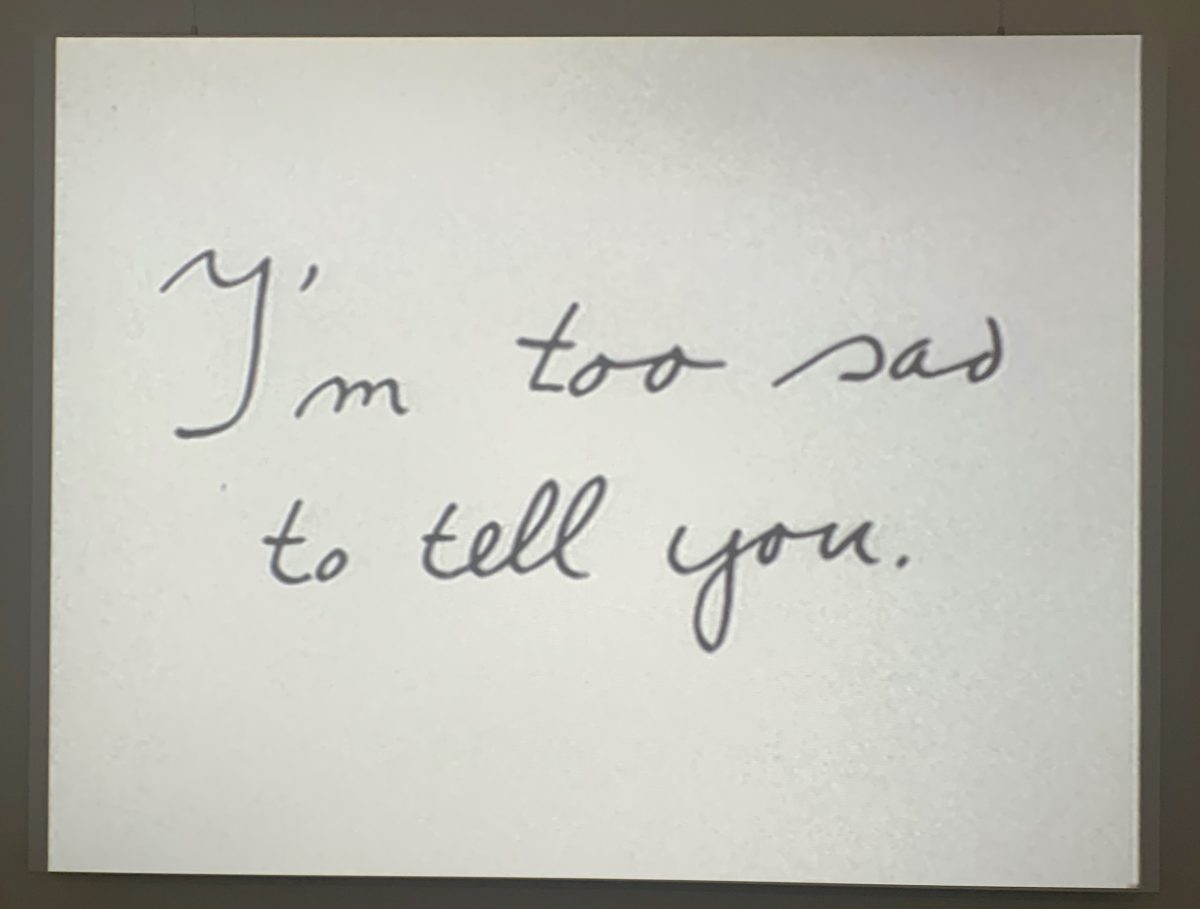 I'm too sad
to tell you.